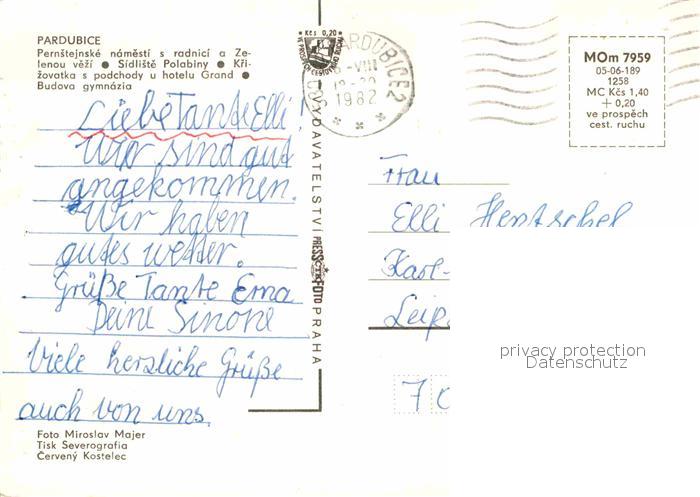 PARDUBICE
Pernštejnské náměstí s radnicí a Ze-
lenou věží ● Sídliště Polabiny ● Kři-
žovatka s podchody u hotelu Grand ●
Budova gymnázia
Liebe Tante Elli!
Wir sind gut
angekommen.
Wir haben
gutes wetter.
Grüße Tante Erna
Deine Simone
Viele herzliche Grüße
auch von uns.
Foto Miroslav Majer
Tisk Severografia
Červený Kostelec
Kčs 0,20
VE PROSPĚCH CESTOVNÍHO RUCHU
VYDAVATELSTVÍ PRESSFOTO PRAHA
PARDUBICE 2
-VIII
1982
MOm 7959
05-06-189
1258
MC Kčs 1,40
+ 0,20
ve prospěch
cest. ruchu
Frau
Elli Hentschel
Karl-
Leip
7 0
privacy protection
Datenschutz